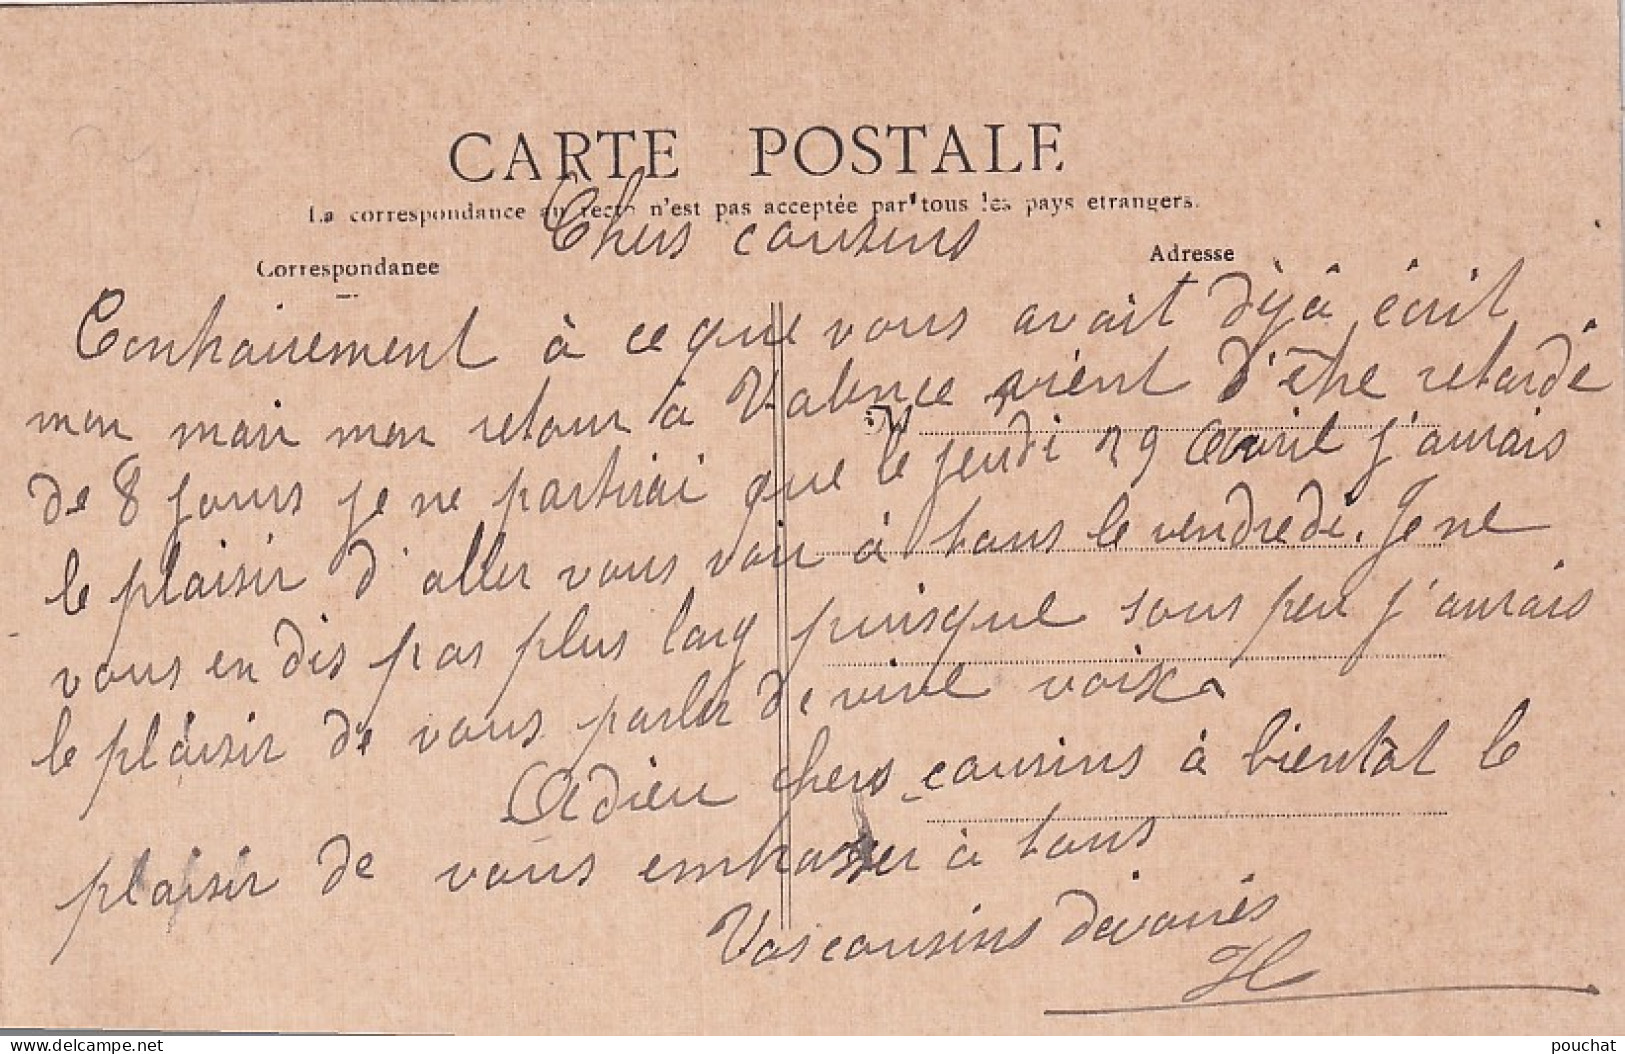 CARTE POSTALE
La correspondance au recto n'est pas acceptée par tous les pays etrangers.
Chers cousins
Correspondance
Adresse
Contrairement à ce que vous avait déjà écrit
mon mari mon retour à Valence vient d'être retardé
de 8 jours je ne partirai que le jeudi 29 Avril j'aurais
le plaisir d'aller vous voir à tous le vendredi. Je ne
vous en dis pas plus long puisque sous peu j'aurais
le plaisir de vous parler de vive voix.
Adieu chers cousins à bientôt le
plaisir de vous embrasser à tous
Vos cousins dévoués
H
pouchat
delcampe.net